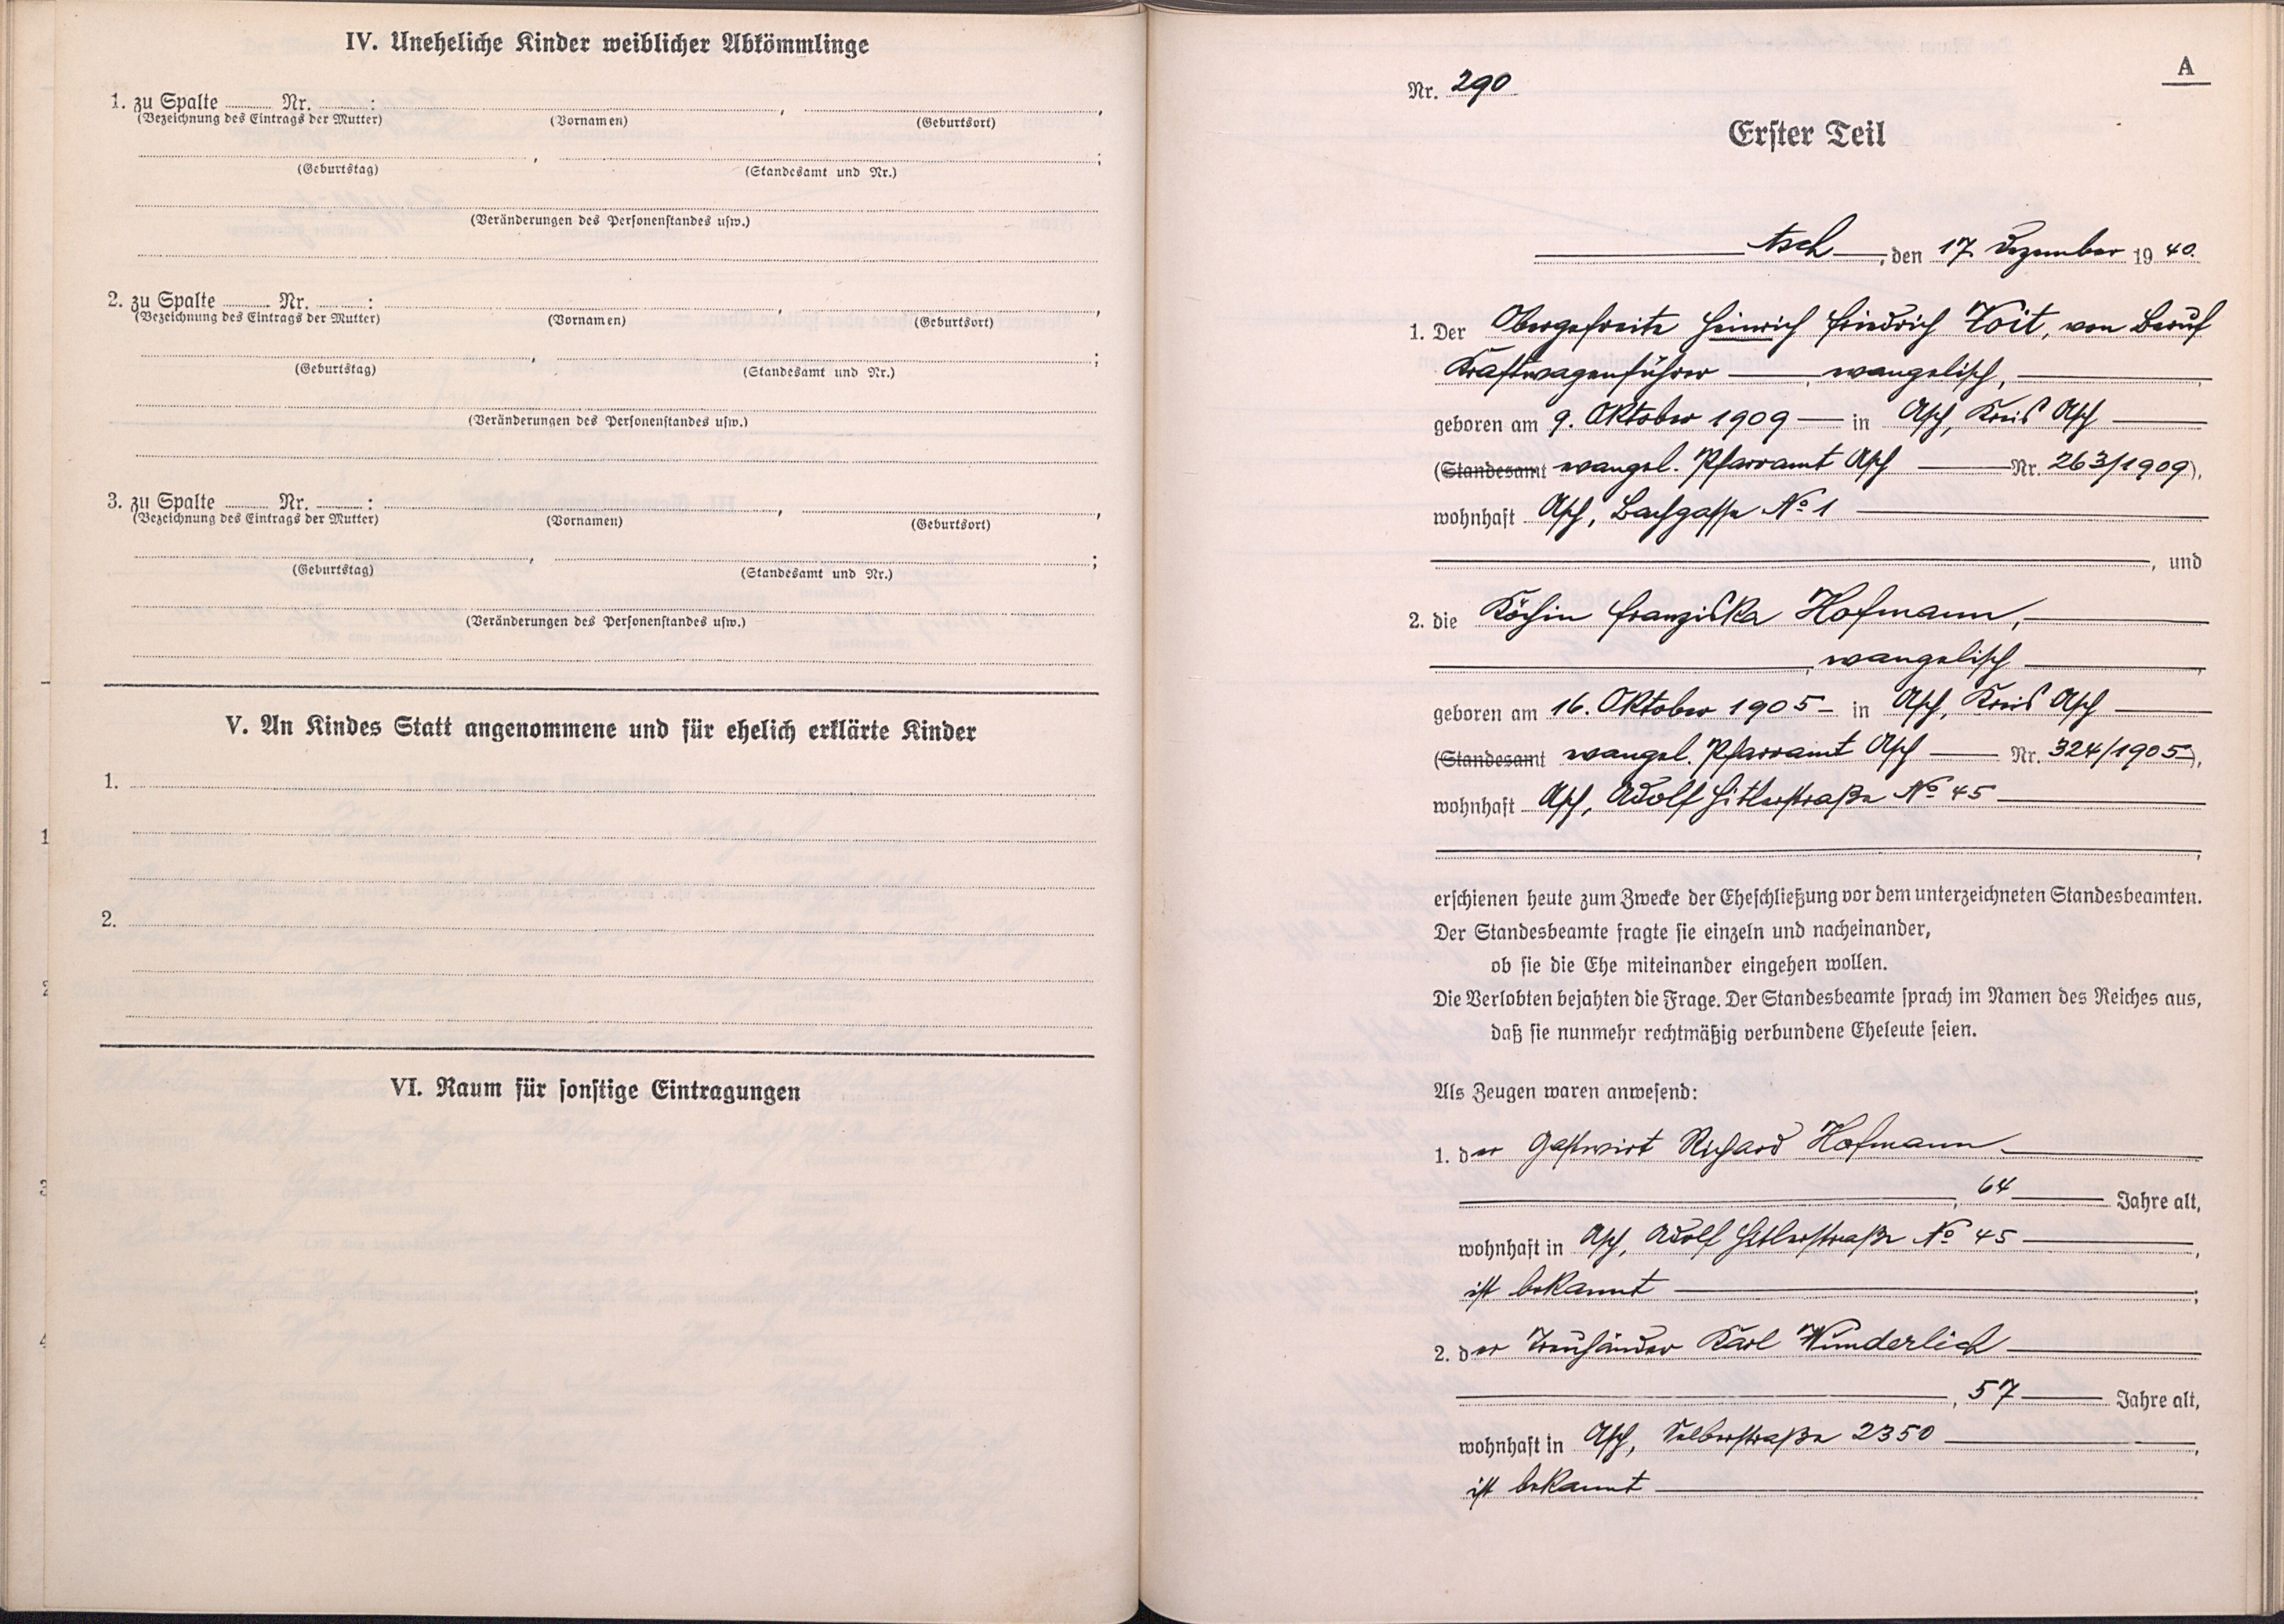 IV. Uneheliche Kinder weiblicher Abkömmlinge
1. zu Spalte ........ Nr. ........ : , ,
(Bezeichnung des Eintrags der Mutter) (Vornamen) (Geburtsort)
, ;
(Geburtstag) (Standesamt und Nr.)
(Veränderungen des Personenstandes usw.)
2. zu Spalte ........ Nr. ........ : , ,
(Bezeichnung des Eintrags der Mutter) (Vornamen) (Geburtsort)
, ;
(Geburtstag) (Standesamt und Nr.)
(Veränderungen des Personenstandes usw.)
3. zu Spalte ........ Nr. ........ : , ,
(Bezeichnung des Eintrags der Mutter) (Vornamen) (Geburtsort)
, ;
(Geburtstag) (Standesamt und Nr.)
(Veränderungen des Personenstandes usw.)
V. An Kindes Statt angenommene und für ehelich erklärte Kinder
1.
2.
VI. Raum für sonstige Eintragungen
A
Nr. 290
Erster Teil
Asch, den 17. Dezember 1940.
1. Der Obergefreite Heinrich Friedrich Voit, von Beruf
Kraftwagenführer, evangelisch,
geboren am 9. Oktober 1909 in Asch, Kreis Asch
(Standesamt evangel. Pfarramt Asch Nr. 263/1909),
wohnhaft Asch, Bachgasse No 1
, und
2. die Köchin Franziska Hofmann,
, evangelisch,
geboren am 16. Oktober 1905 in Asch, Kreis Asch
(Standesamt evangel. Pfarramt Asch Nr. 324/1905),
wohnhaft Asch, Adolf Hitlerstraße No 45
,
erschienen heute zum Zwecke der Eheschließung vor dem unterzeichneten Standesbeamten.
Der Standesbeamte fragte sie einzeln und nacheinander,
ob sie die Ehe miteinander eingehen wollen.
Die Verlobten bejahten die Frage. Der Standesbeamte sprach im Namen des Reiches aus,
daß sie nunmehr rechtmäßig verbundene Eheleute seien.
Als Zeugen waren anwesend:
1. der Gastwirt Richard Hofmann
, 64 Jahre alt,
wohnhaft in Asch, Adolf Hitlerstraße No 45,
ist bekannt;
2. der Treuhänder Karl Wunderlich
, 57 Jahre alt,
wohnhaft in Asch, Selberstraße 2350,
ist bekannt